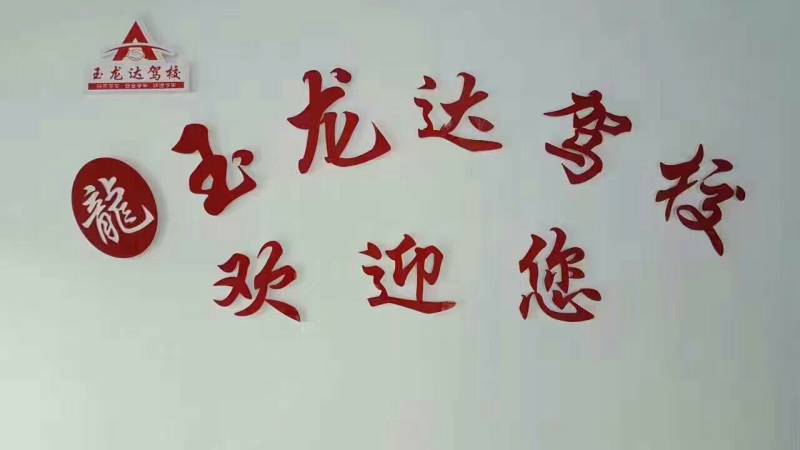 玉龙达驾校
龍
玉龙达驾校
欢迎您